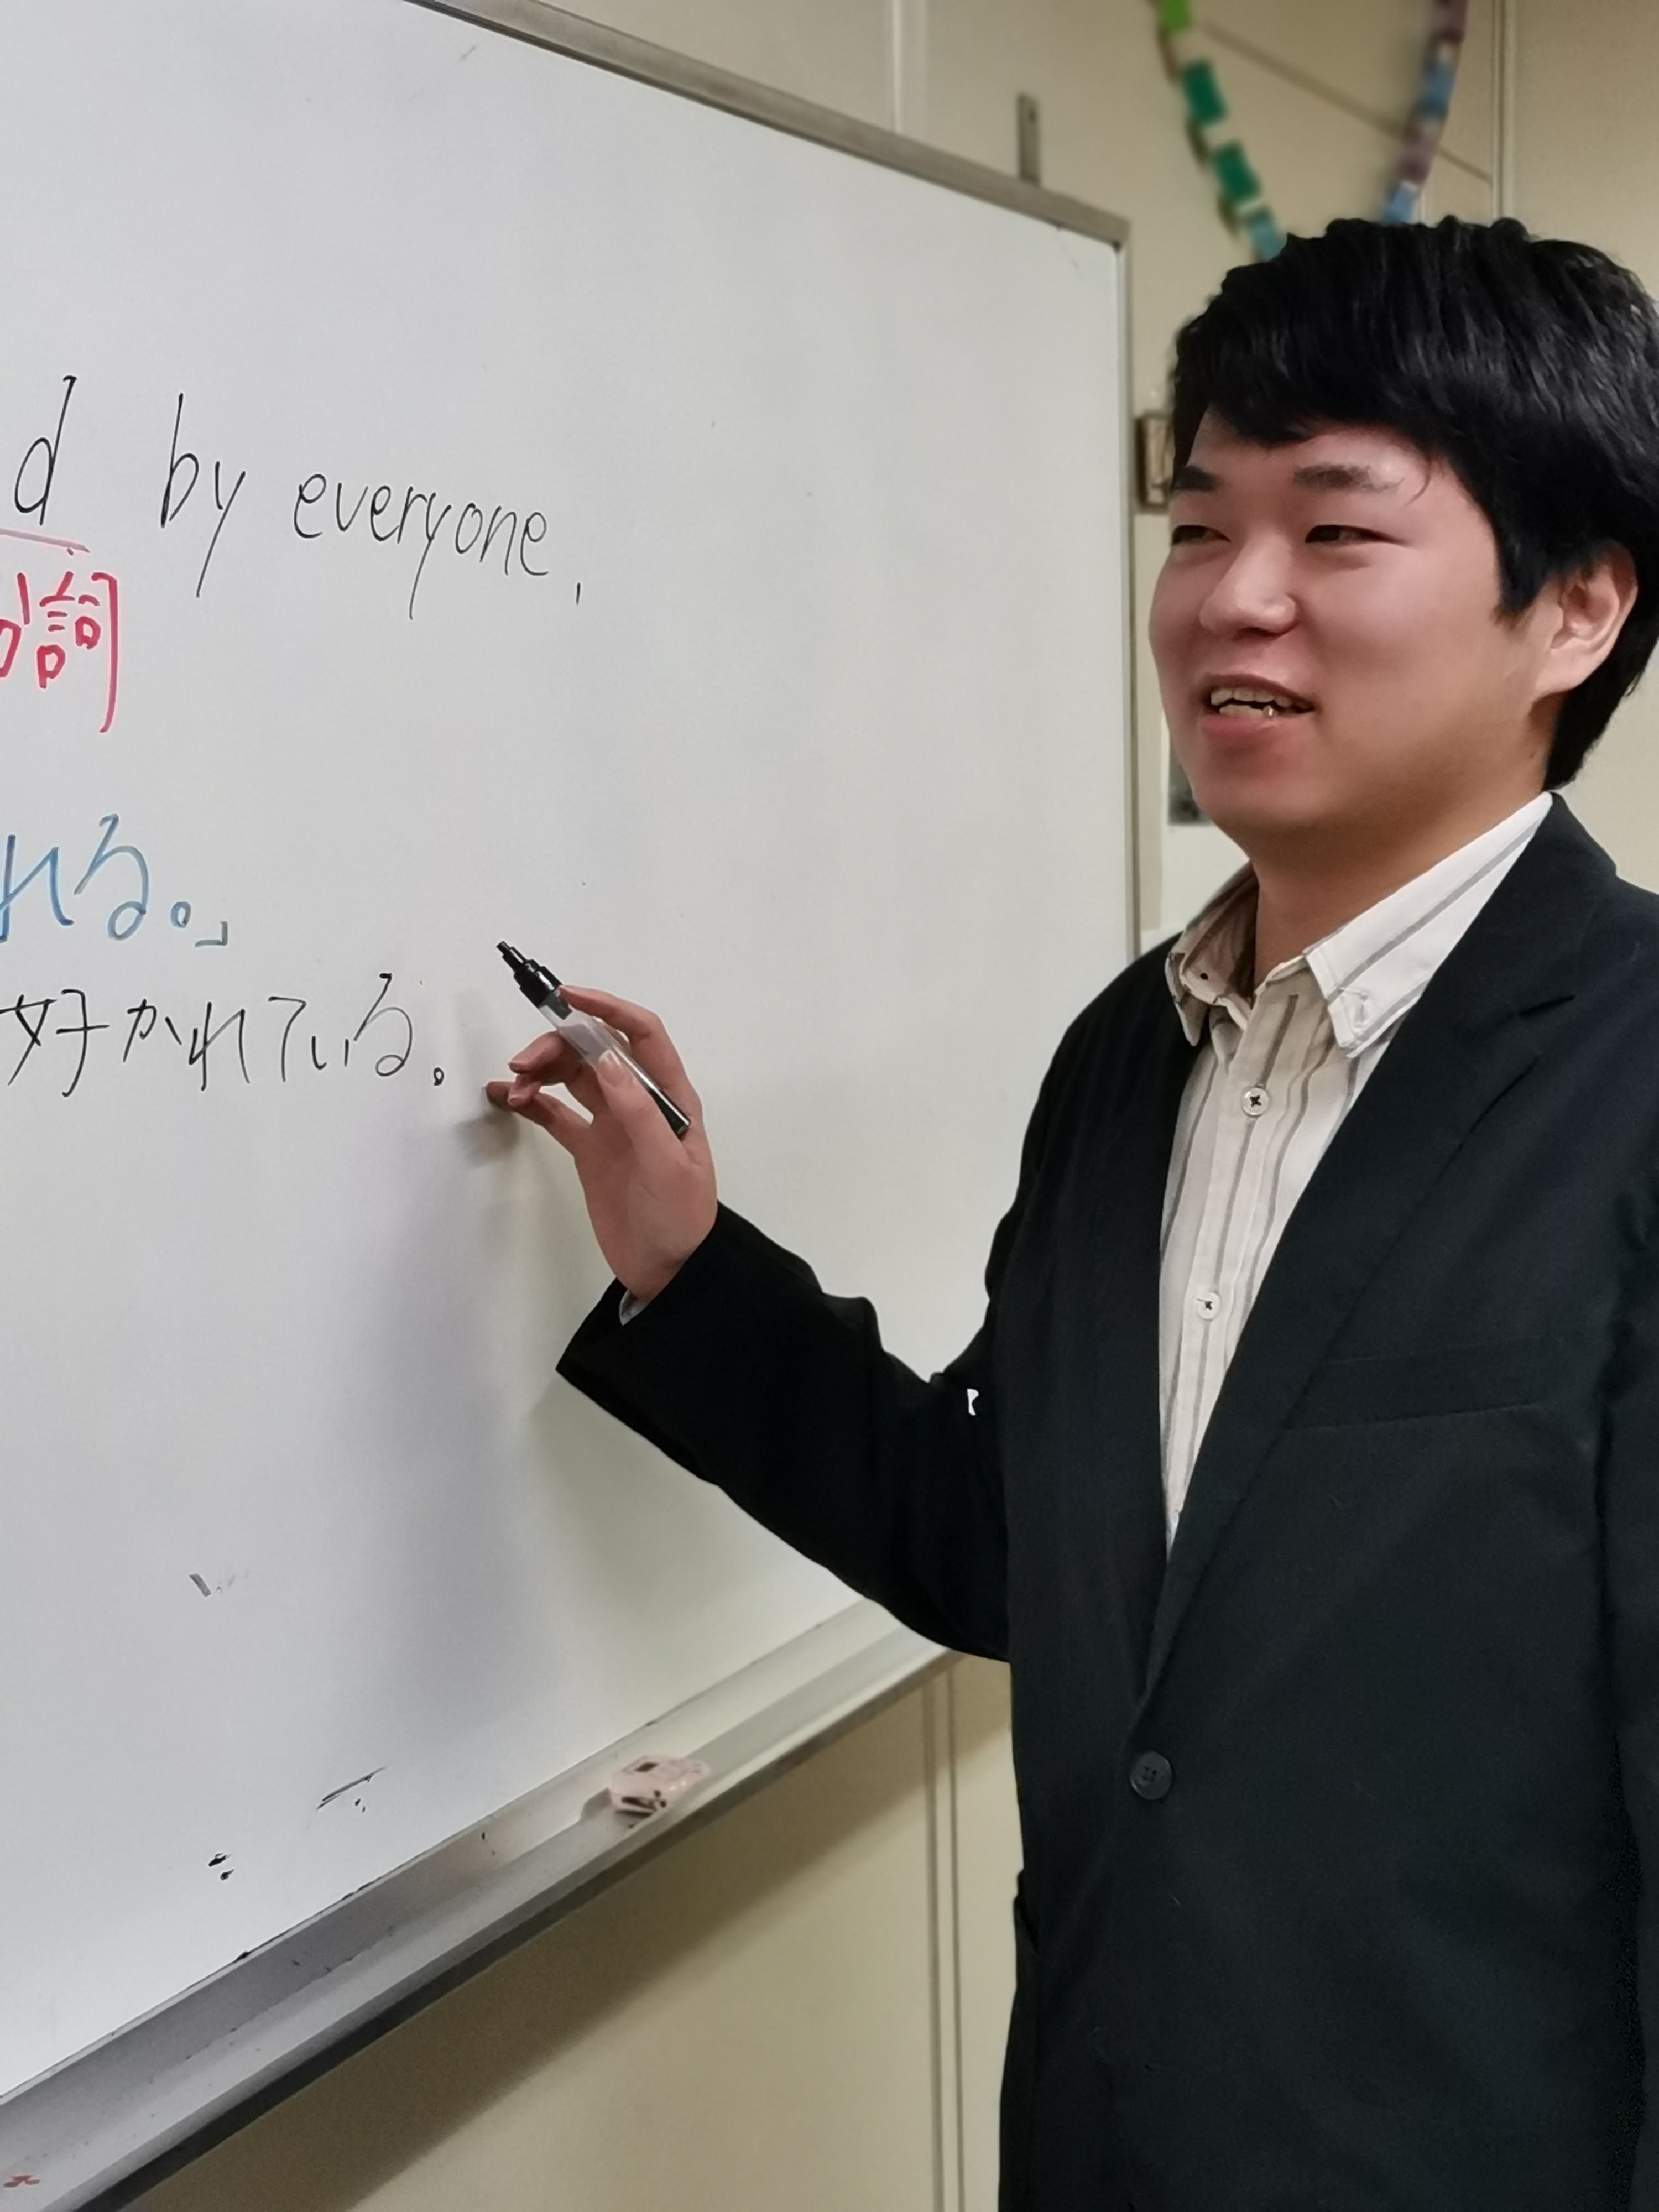 d by everyone.
詞]
れる。」
好かれている。